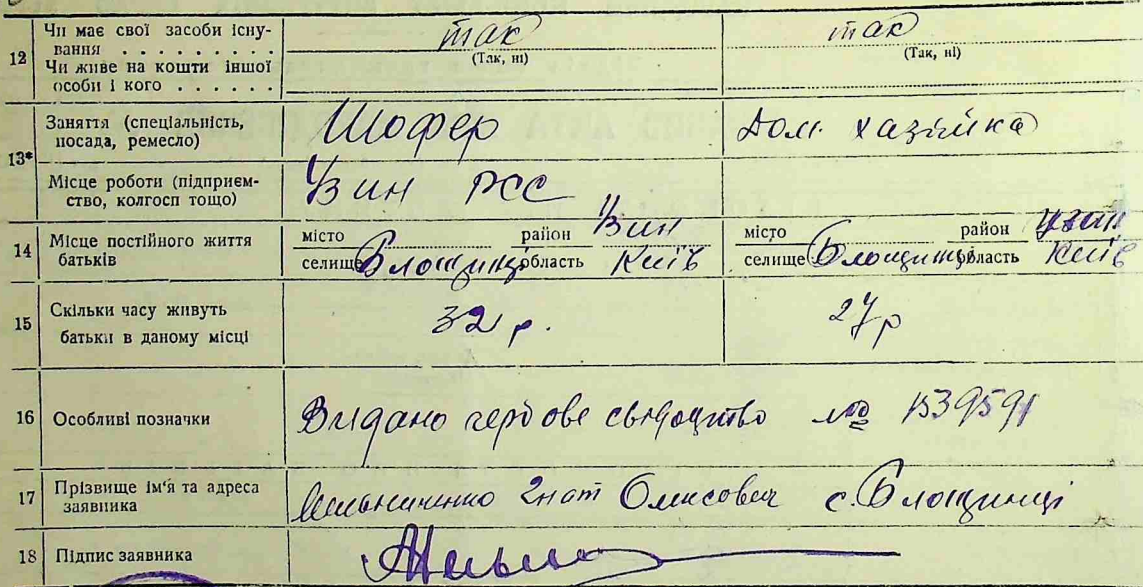 12 Чи має свої засоби існування . . . . . . . . . так (Так, ні) так (Так, ні)
Чи живе на кошти іншої особи і кого . . . . . .
13* Заняття (спеціальність, посада, ремесло) Шофер Дом. хазяйка
Місце роботи (підприємство, колгосп тощо) Узин РСС
14 Місце постійного життя батьків місто район Узин місто район Узин
селище Блощинці область Київ селище Блощинці область Київ
15 Скільки часу живуть батьки в даному місці 32 р. 27 р
16 Особливі позначки Видано гербове свідоцтво №
17 Прізвище ім'я та адреса заявника Гнат с. Блощинці
18 Підпис заявника